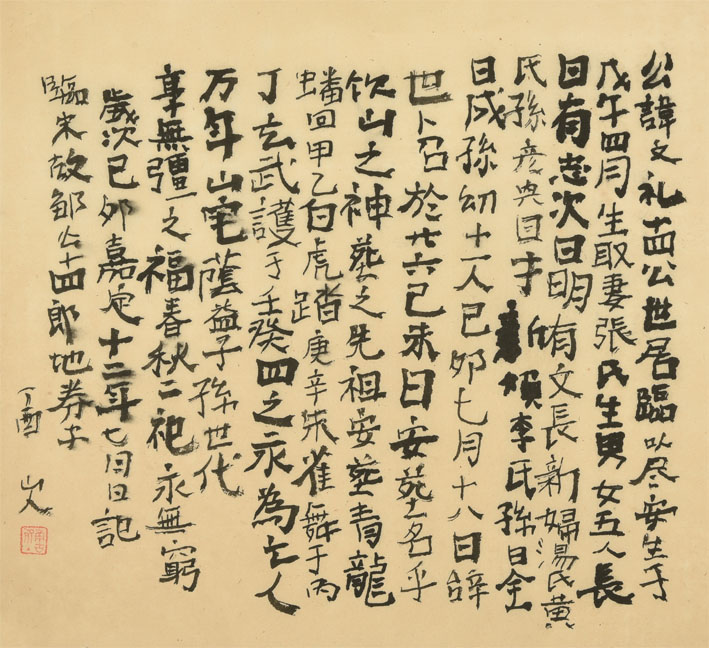 公諱文礼十四公世居臨以尽安生于
戊午四月生取妻张氏生男女五人長
曰有志次曰明侑文長新婦湯氏黄
氏孫彦典目才 熲李氏孫日全
日成孫幼十一人己卯七月十八日辞
世卜召於廿六己未日安塟名乎
饮山之神塟之先祖安塟青龍
蟠回甲乙白虎踏庚辛朱雀舞于丙
丁玄武護于壬癸四之永為亡人
万年山宅蔭益子孫世代
享無彊之福春秋二祀永無窮
歲次已卯嘉定十二年七月日記
臨宋故鄒公十四郎地券于
丁酉 山人